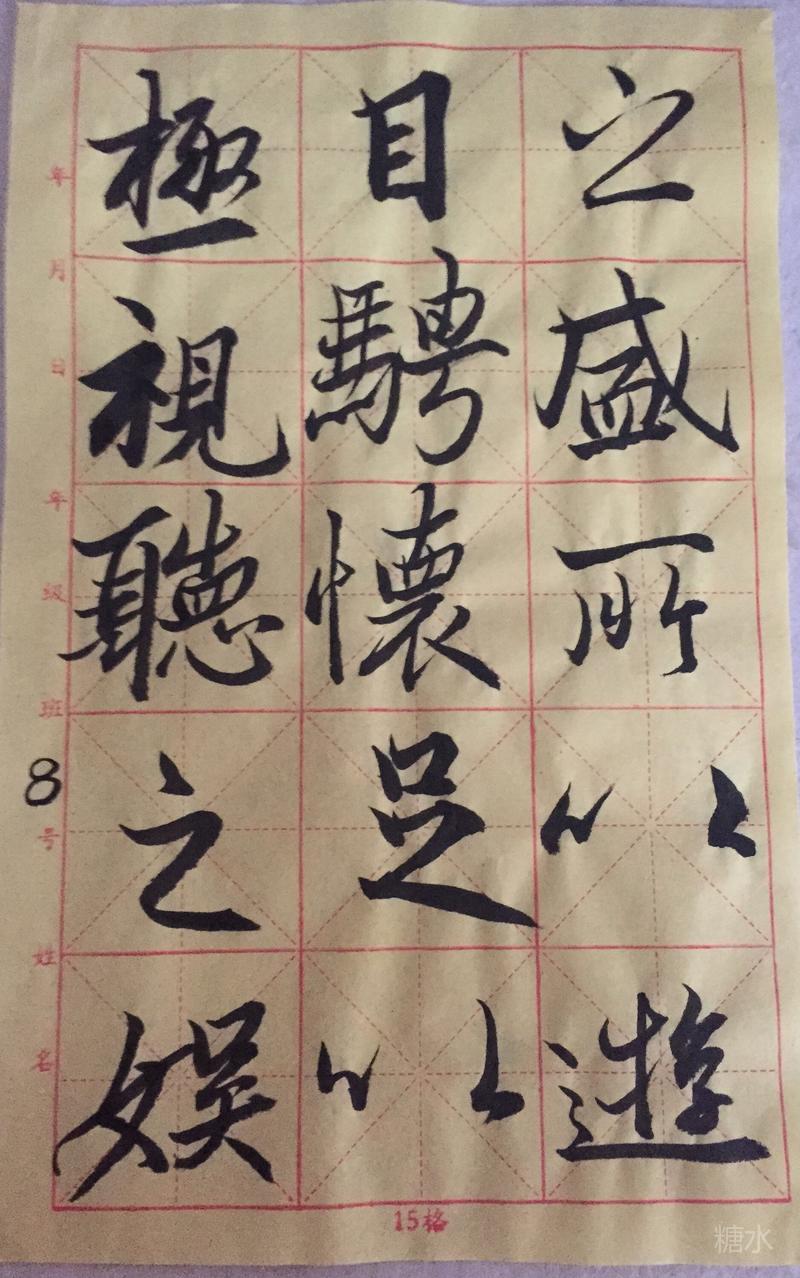 之盛所以遊
目騁懷足以
極視聽之娛
年月日
年級班
8号
姓名
15格
糖水